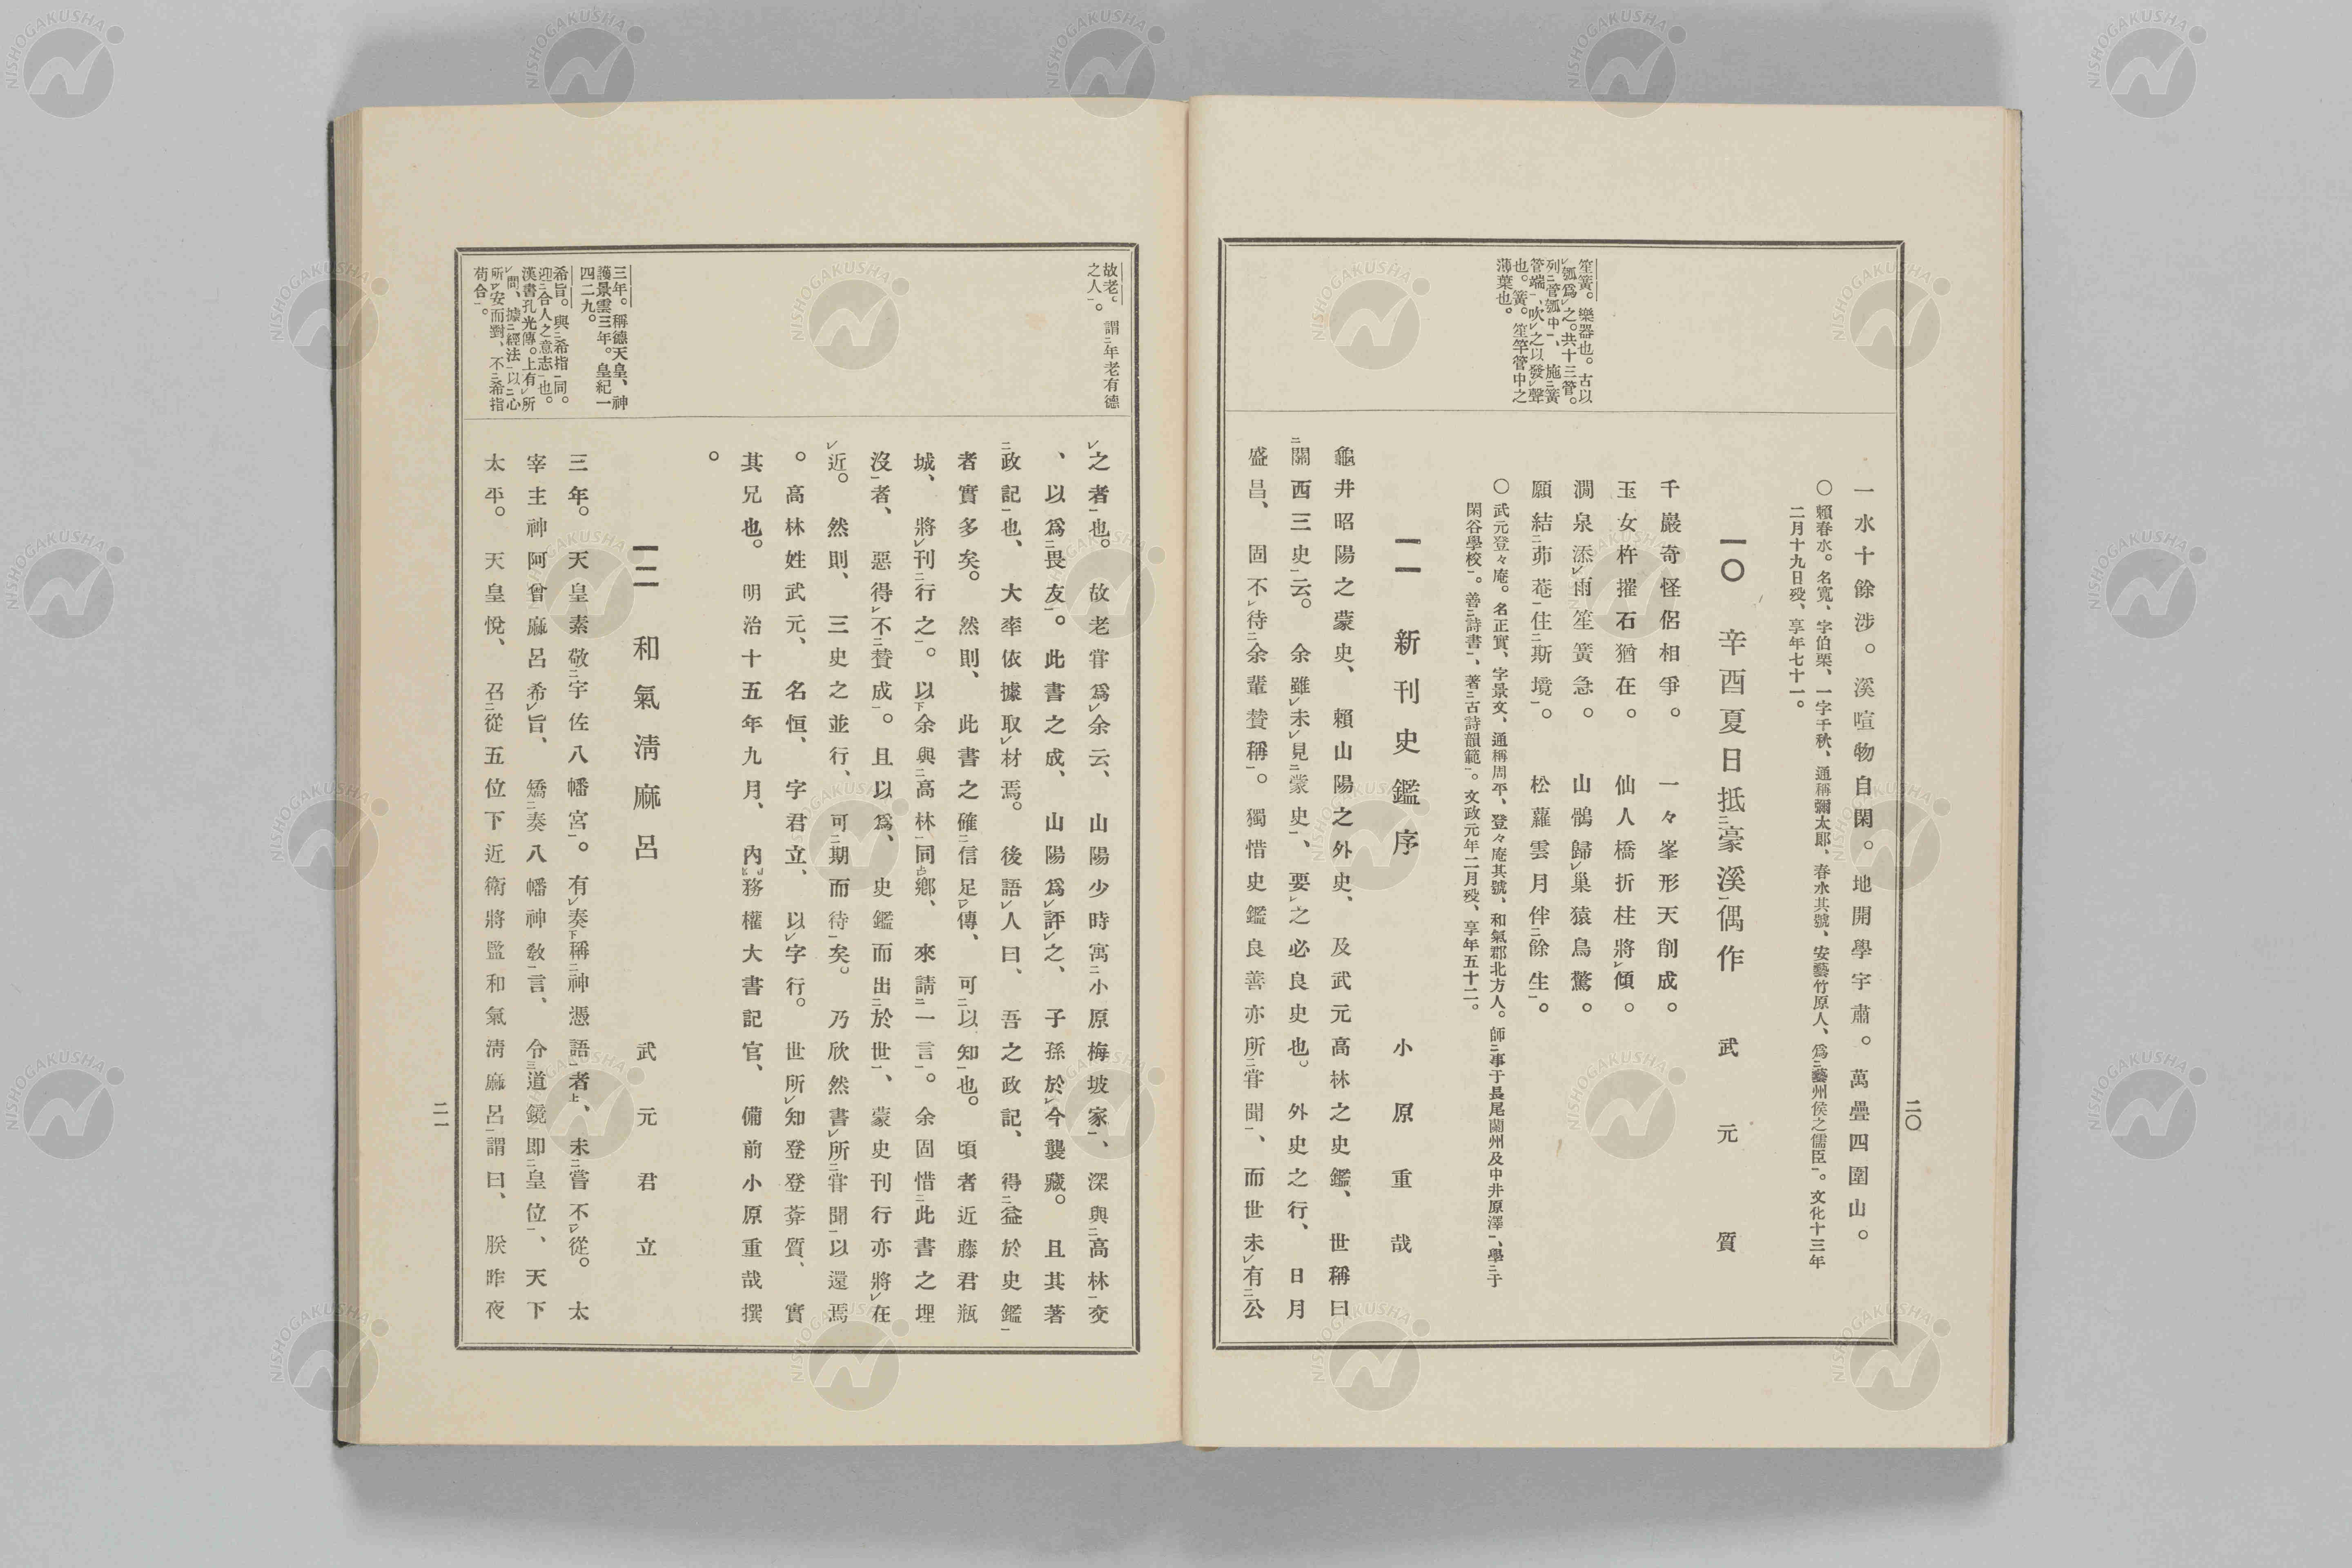 二〇
笙簧。樂器也。古以
レ瓠爲レ之。共十三管。
列二管瓠中一、施二簧
管端一、吹レ之以發レ聲
也。簧。笙竽管中之
薄葉也。
一水十餘渉。溪喧物自閑。地開學宇肅。萬疊四圍山。
〇賴春水。名寬、字伯栗、一字千秋、通稱彌太郎、春水其號、安藝竹原人、爲二藝州侯之儒臣一。文化十三年
二月十九日歿、享年七十一。
一〇 辛酉夏日抵二豪溪一偶作 武元質
千巖奇怪侶相爭。 一々峯形天削成。
玉女杵摧石猶在。 仙人橋折柱將レ傾。
澗泉添レ雨笙簧急。 山鶻歸レ巢猿鳥驚。
願結二茆菴一住二斯境一。 松蘿雲月伴二餘生一。
〇武元登々庵。名正實、字景文、通稱周平、登々庵其號、和氣郡北方人。師二事于長尾蘭州及中井原澤一、學二于
閑谷學校一。善二詩書一、著二古詩韻範一。文政元年二月歿、享年五十二。
一一 新刊史鑑序 小原重哉
龜井昭陽之蒙史、賴山陽之外史、及武元高林之史鑑、世稱曰
二關西三史一云。余雖レ未レ見二蒙史一、要レ之必良史也。外史之行、日月
盛昌、固不レ待二余輩贊稱一。獨惜史鑑良善亦所二甞聞一、而世未レ有二公
故老。謂二年老有德
之人一。
三年。稱德天皇、神
護景雲三年。皇紀一
四二九。
希旨。與二希指一同。
迎二合人之意志一也。
漢書孔光傳。上有レ所
レ問、據二經法一以二心
所レ安而對、不二希指
苟合一。
レ之者一也。故老甞爲レ余云、山陽少時寓二小原梅坡家一、深與二高林一交
、以爲二畏友一。此書之成、山陽爲レ評レ之、子孫於レ今襲藏。且其著
二政記一也、大率依據取レ材焉。後語レ人曰、吾之政記、得二益於史鑑一
者實多矣。然則、此書之確二信足レ傳、可二以知一也。頃者近藤君瓶
城、將レ刊二行之一。以下余與二高林一同上鄕、來請二一言一。余固惜二此書之埋
沒一者、惡得レ不二贊成一。且以爲、史鑑而出二於世一、蒙史刊行亦將レ在
レ近。然則、三史之並行、可二期而待一矣。乃欣然書レ所二甞聞一以還焉
。高林姓武元、名恒、字君立、以レ字行。世所レ知登登菴質、實
其兄也。明治十五年九月、內務權大書記官、備前小原重哉撰
。
一二 和氣淸麻呂 武元君立
三年。天皇素敬二宇佐八幡宮一。有レ奏下稱二神憑語一者上、未二嘗不一レ從。太
宰主神阿曾麻呂希レ旨、矯二奏八幡神敎一言、令三道鏡即二皇位一、天下
太平。天皇悅、召二從五位下近衛將監和氣淸麻呂一謂曰、朕昨夜
二一